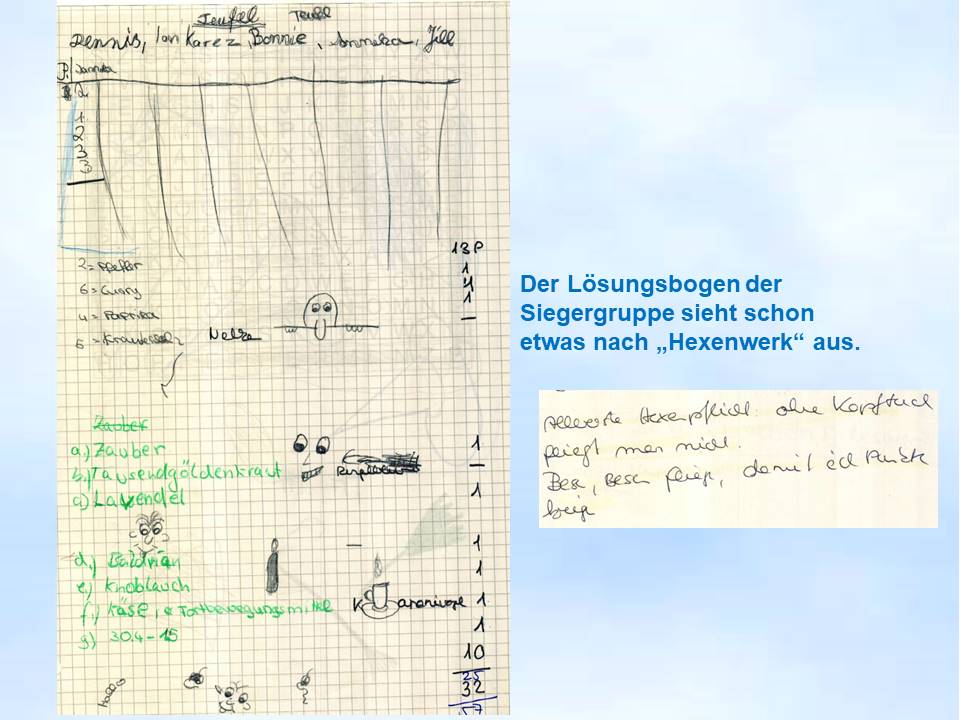 Teufel Teufel
Dennis, Jan Karez, Bonnie, Annika, Jill
P. Jannika
2
1
2
3
3
13P
2 = Pfeffer 1
6 = Curry 1
4 = Paprika 1
5 = Nelke –
Zauber
a.) Zauber 1
b.) Tausendgöldenkraut –
c) Lavendel 1
d.) Baldrian – 1
e.) Knoblauch 1
f.) Käse, Fortbewegungsmittel 1
g) 30.4 - 1.5 1
10
25
32
57
Hallo
Der Lösungsbogen der
Siegergruppe sieht schon
etwas nach „Hexenwerk“ aus.
Allererste Hexenpflicht: ohne Kopftuch
fliegt man nicht.
Besen, Besen fliege, damit ich Punkte
kriege